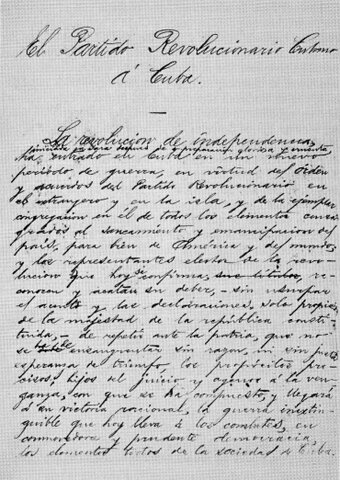 El Partido Revolucionario Cubano
á Cuba.
La revolución de independencia,
iniciada en Yara después de preparación gloriosa y cruenta,
ha entrado en Cuba en un nuevo
período de guerra, en virtud del orden
y acuerdos del Partido Revolucionario en
el extranjero y en la isla, y de la ejemplar
congregación en él de todos los elementos consa-
grados al saneamiento y emancipación del
país, para bien de América y del mundo;
y los representantes electos de la revo-
lución que hoy se confirma, reco-
nocen y acatan su deber, - sin usurpar
el acento y las declaraciones, solo propias
de la majestad de la república consti-
tuida, - de repetir ante la patria, que no
se ha de ensangrentar sin razón, ni sin justa
esperanza de triunfo, los propósitos pre-
cisos, hijos del juicio y ajenos á la ven-
ganza, con que se ha compuesto, y llegará
á su victoria racional, la guerra inextin-
guible que hoy lleva á los combates, en
conmovedora y prudente democracia,
los elementos todos de la sociedad de Cuba.